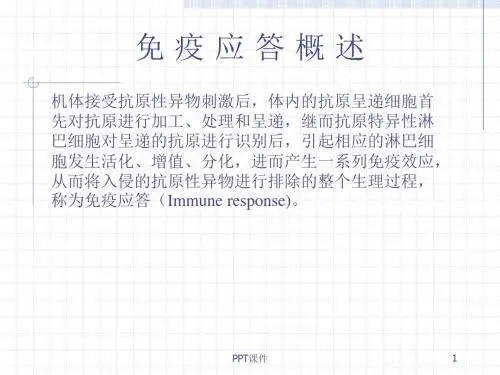 免疫应答概述
机体接受抗原性异物刺激后，体内的抗原呈递细胞首
先对抗原进行加工、处理和呈递，继而抗原特异性淋
巴细胞对呈递的抗原进行识别后，引起相应的淋巴细
胞发生活化、增值、分化，进而产生一系列免疫效应，
从而将入侵的抗原性异物进行排除的整个生理过程，
称为免疫应答（Immune response)。
PPT课件
1